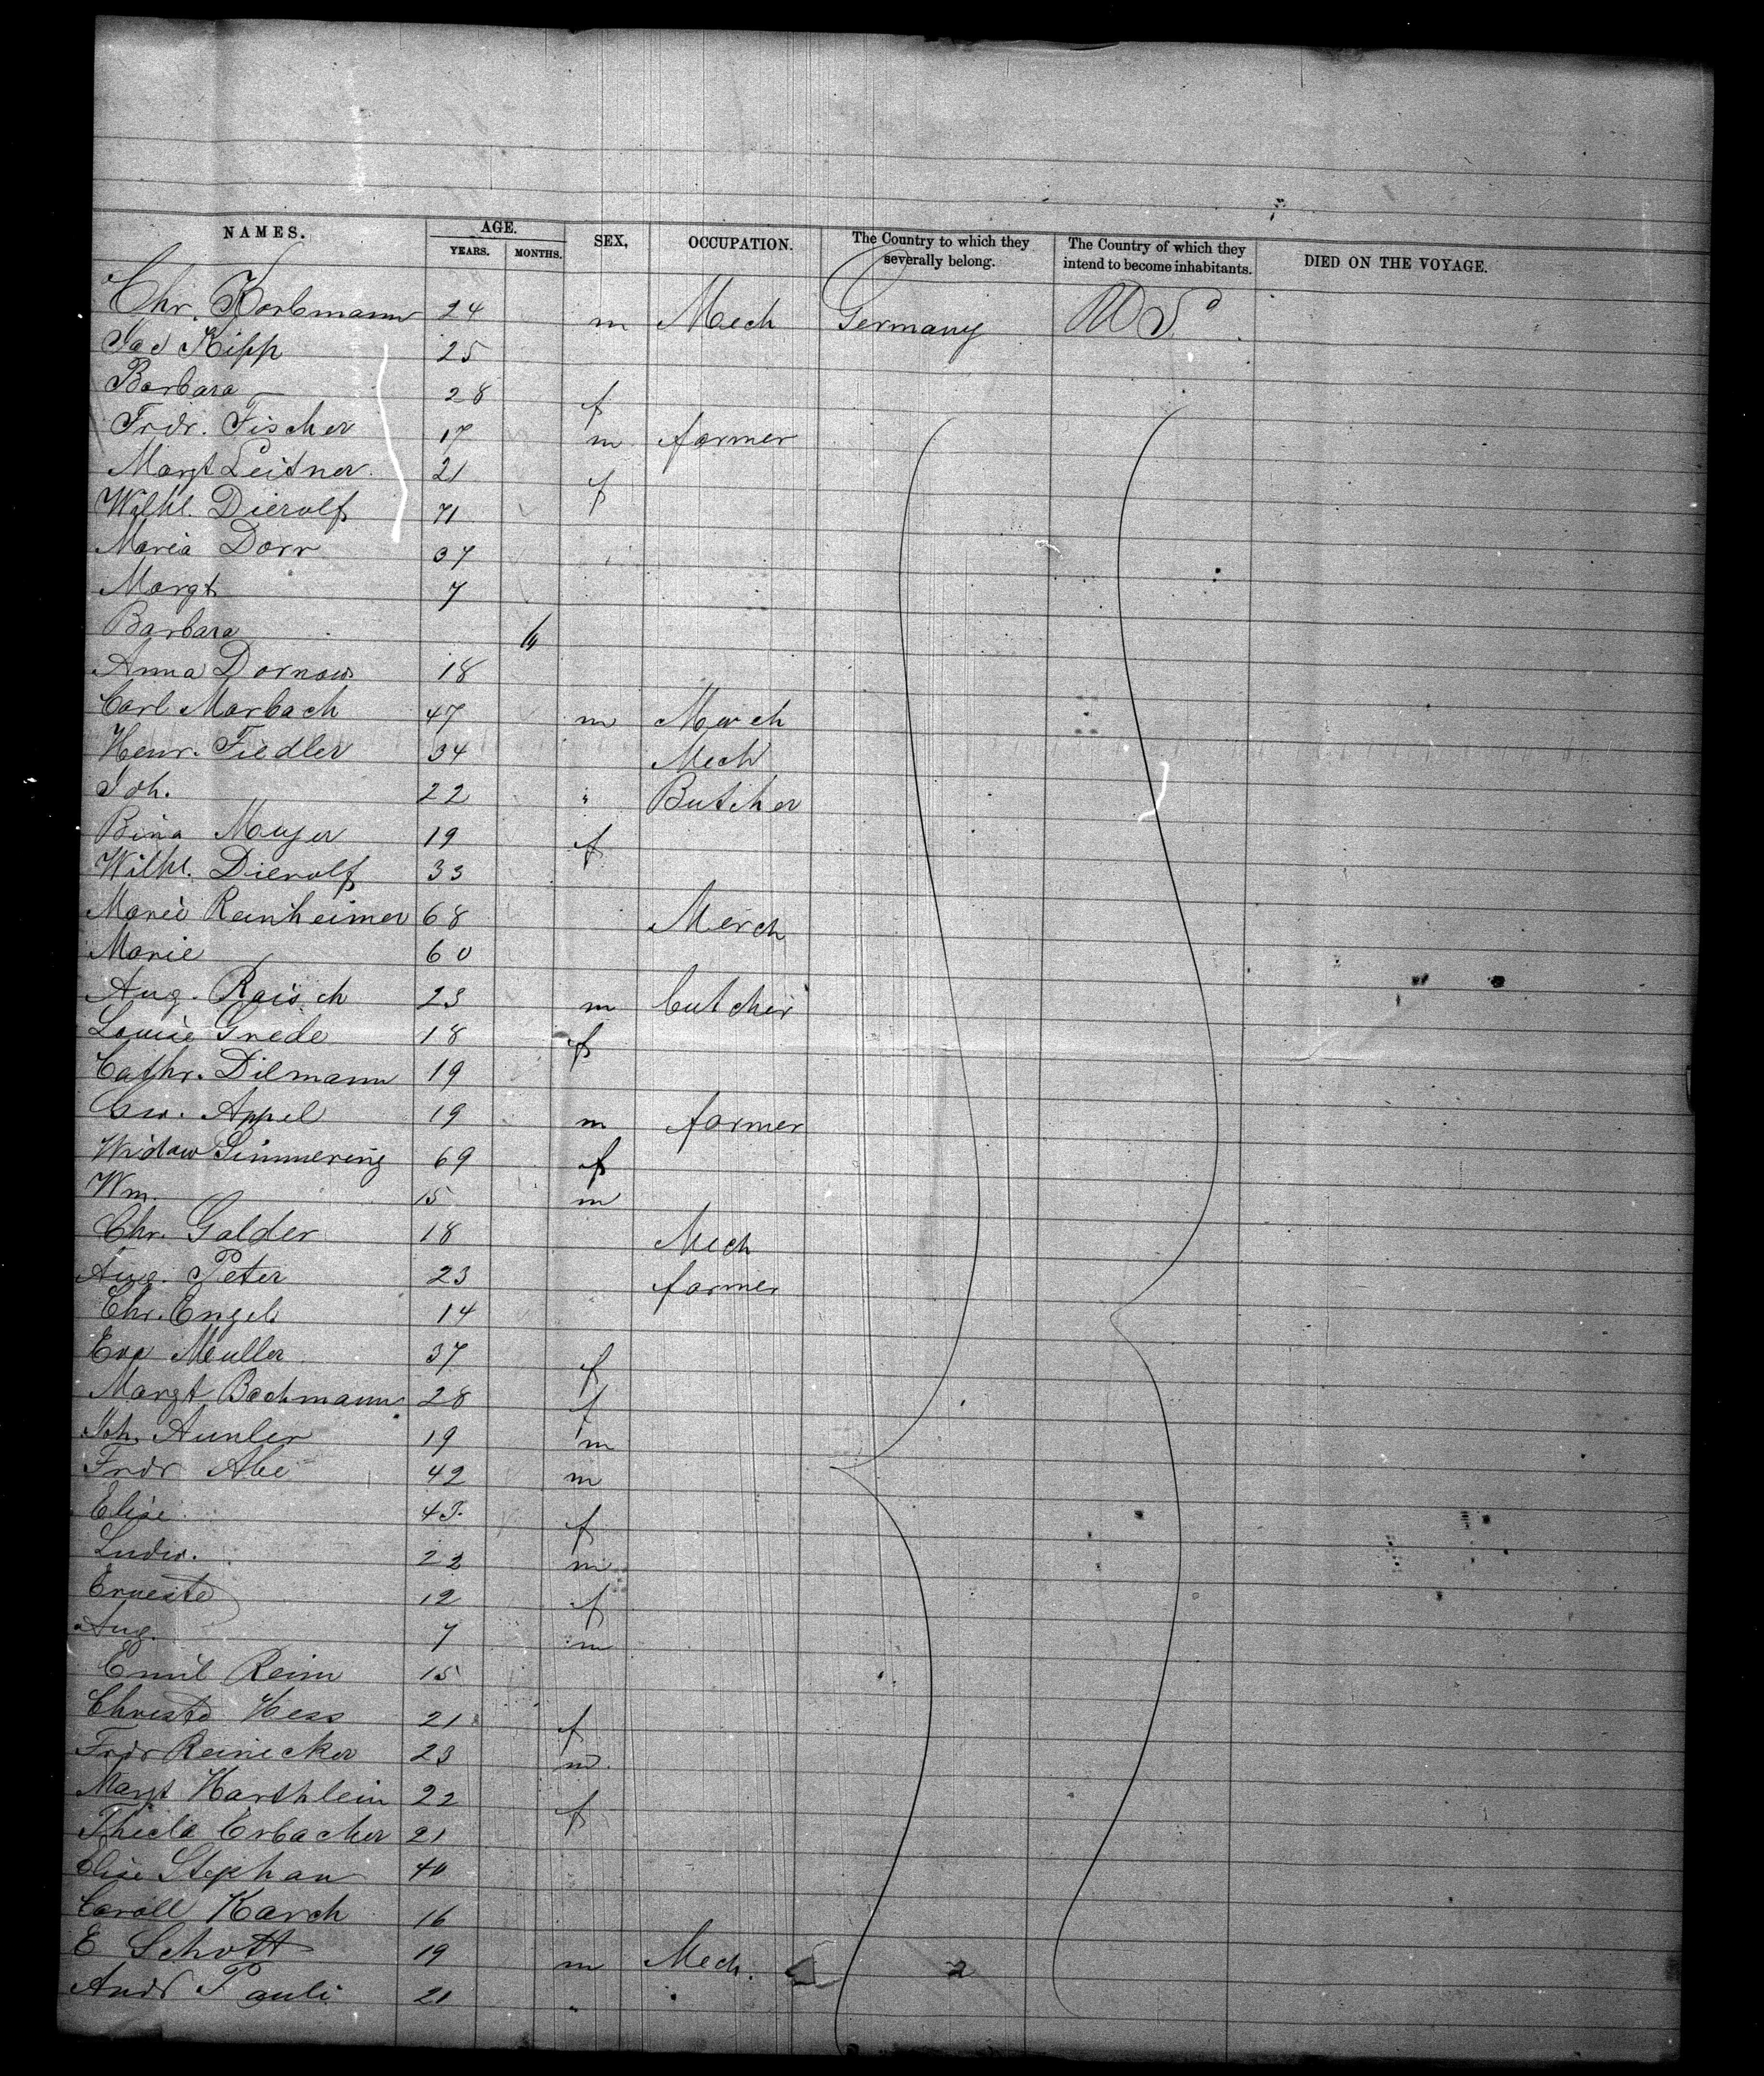 NAMES. AGE. YEARS. MONTHS. SEX, OCCUPATION. The Country to which they severally belong. The Country of which they intend to become inhabitants. DIED ON THE VOYAGE.
Chr. Korbmann 24 m Mech Germany U S
Jac Kipp 25
Barbara — 28 f
Frdr. Fischer 17 m farmer
Margt Leitner 21 f
Wilhl. Dierolf 71
Maria Dorr 37
Margt 7
Barbara
Anna Dornow 18
Carl Marbach 47 m Merch
Henr. Fiedler 34 Mech
Joh. 22 " Butcher
Bina Meyer 19 f
Wilhl. Dierolf 33
Marie Reinheimer 68 Merch
Marie 60
Aug. Raisch 23 m butcher
Louise Grede 18 f
Cathr. Dilmann 19
Appel 19 m farmer
Widow Simmering 69 f
Wm. 15 m
Chr. Galder 18 Mech
Aug. Peter 23 farmer
Chr. Engel 14
Eva Muller 37 f
Margt Bachmann 28 f
Joh. 19 m
Frdr Abe 42 m
Elise 43 f
Ludw. 22 m
Erneste 12 f
Aug. 7 m
Emil Reim 15
Christe Hess 21 f
Frdr Reinecker 23 m
Margt Harthlein 22 f
Thecla Erbacher 21
Elise Stephan 40
Caroll Karch 16
E Schott 19 m Mech. 2
Andr Pauli 21 "